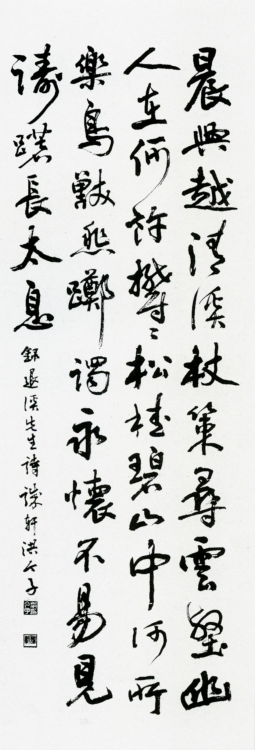 晨興越清溪杖策尋雲壑幽
人在何許鬱〻松桂碧山中何所
樂鳥獸躑躅永懷不易見
躊躇長太息
錄退溪先生詩 軒洪子